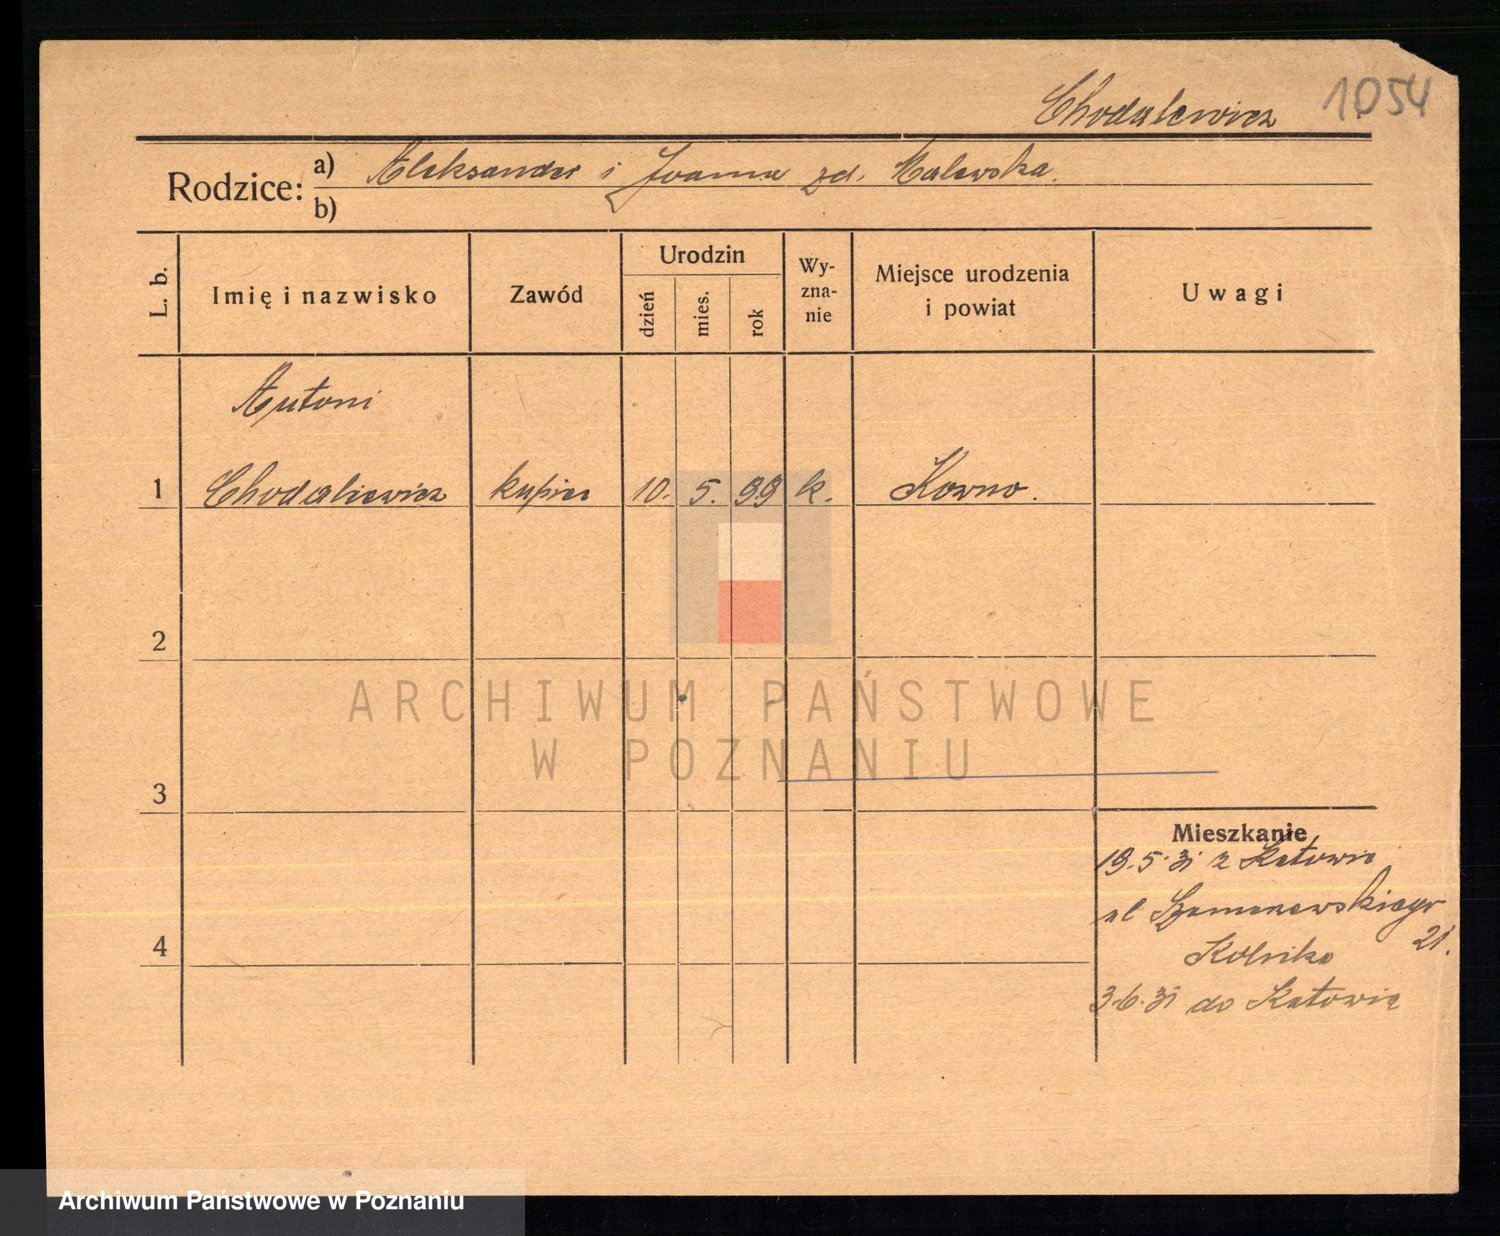 Chodalewicz 1054
Rodzice: a) Aleksander i Joanna zd. Malewska.
b)
L. b. Imię i nazwisko Zawód Urodzin dzień mies. rok Wy-zna-nie Miejsce urodzenia i powiat Uwagi
Antoni
1 Chodaliewicz kupiec 10. 5. 99 k. Kowno.
2
ARCHIWUM PAŃSTWOWE
W POZNANIU
3
Mieszkanie
19.5.31 z Katowic
ul
4
21.
3.6.31 do Katowic
Archiwum Państwowe w Poznaniu